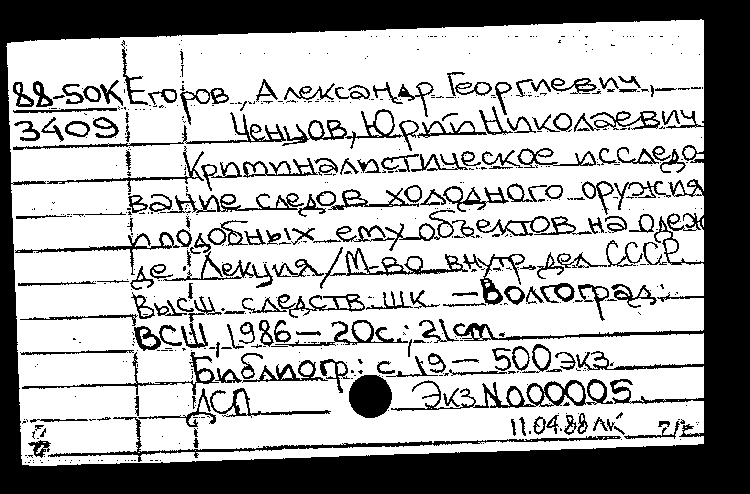 88-50К Егоров, Александр Георгиевич,
3409 Ченцов, Юрий Николаевич.
Криминалистическое исследо-
вание следов холодного оружия
и подобных ему объектов на одеж-
де: Лекция/М-во внутр. дел СССР.
Высш. следств. шк. — Волгоград:
ВСШ, 1986 — 20с.; 21см.
Библиогр.: с. 19. — 500 экз.
ДСП Экз N000005.
11.04.88 ЛК